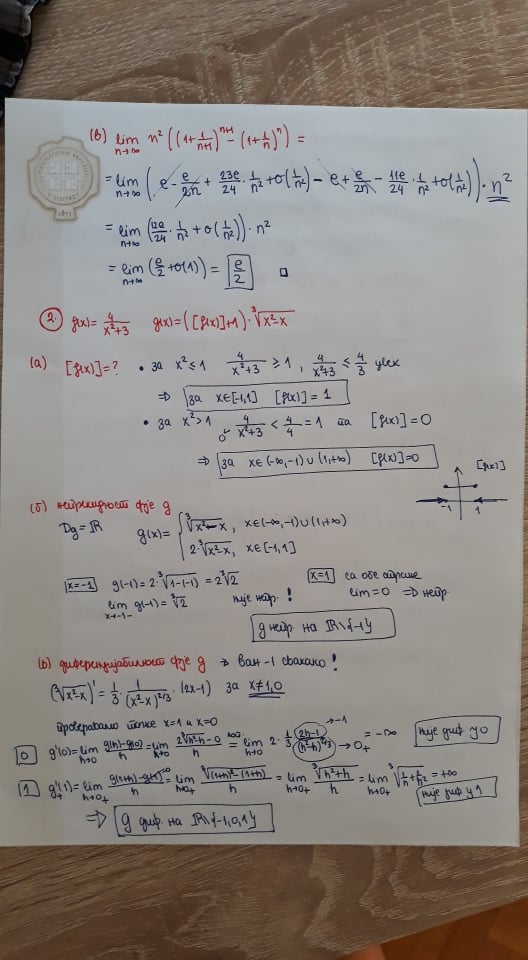 (в) lim n→∞ n² ((1+1/(n+1))^(n+1) − (1+1/n)^n) =
= lim n→∞ (e − e/2n + 23e/24 · 1/n² + o(1/n²) − e + e/2n − 11e/24 · 1/n² + o(1/n²)) · n²
= lim n→∞ (12e/24 · 1/n² + o(1/n²)) · n²
= lim n→∞ (e/2 + o(1)) = e/2 □
2. f(x) = 4/(x²+3) g(x) = ([f(x)]+1) · ∛(x²−x)
(а) [f(x)] = ? • за x² ≤ 1 4/(x²+3) ≥ 1, 4/(x²+3) ≤ 4/3 увек
⇒ за x∈[-1,1] [f(x)] = 1
• за x² > 1 0 < 4/(x²+3) < 4/4 = 1 па [f(x)] = 0
⇒ за x∈(-∞,-1)∪(1,+∞) [f(x)] = 0
[f(x)]
-1 1
(б) непрекидност фје g
Dg = ℝ g(x) = { ∛(x²−x), x∈(-∞,-1)∪(1,+∞)
2·∛(x²−x), x∈[-1,1]
x=-1 g(-1) = 2·∛(1-(-1)) = 2∛2 x=1 са обе стране
lim x→-1- g(-1) = ∛2 није непр. ! lim = 0 ⇒ непр.
g непр. на ℝ\{-1}
(в) диференцијабилност фје g → ван -1 свакако !
(∛(x²−x))' = 1/3 · 1/(x²−x)^(2/3) · (2x−1) за x≠1,0
проверавамо тачке x=1 и x=0
0 g'(0) = lim h→0 (g(h)−g(0))/h = lim h→0 (2∛(h²−h) − 0)/h = lim h→0 2 · 1/3 (2h−1)/(h²−h)^(2/3) → -1 → 0+ = -∞ није диф у 0
1 g'+(1) = lim h→0+ (g(1+h)−g(1))/h = lim h→0+ ∛((1+h)²−(1+h))/h = lim h→0+ ∛(h²+h)/h = lim h→0+ ∛(1/h + 1/h²) = +∞ није диф у 1
⇒ g диф. на ℝ\{-1,0,1}